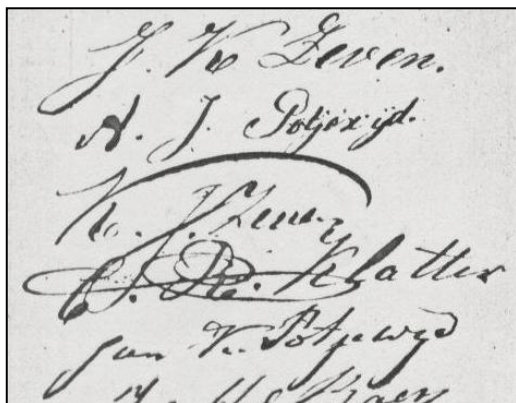 J. K Zeven.
A. J. Potjewijd.
K. J. Zeven
J. R. Klatter
Jan K. Potjewyd